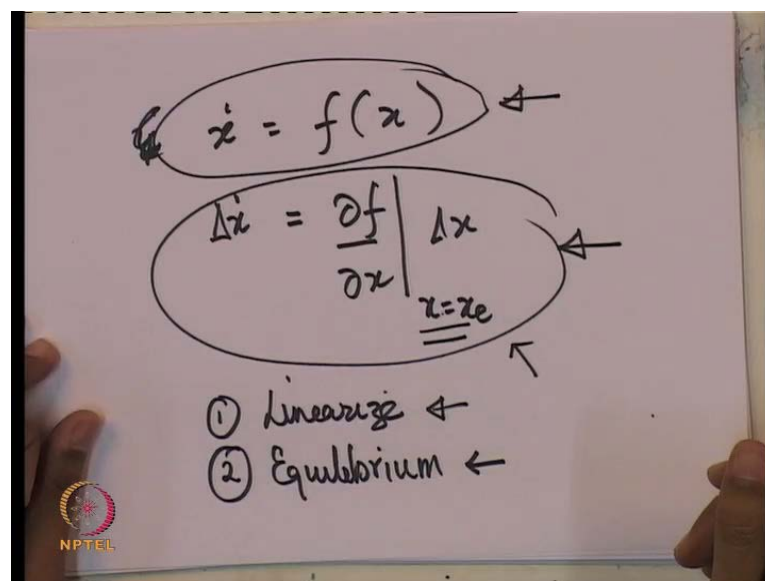 ẋ = f(x)
Δẋ = ∂f/∂x | Δx
x=xe
① Linearize
② Equilibrium
NPTEL